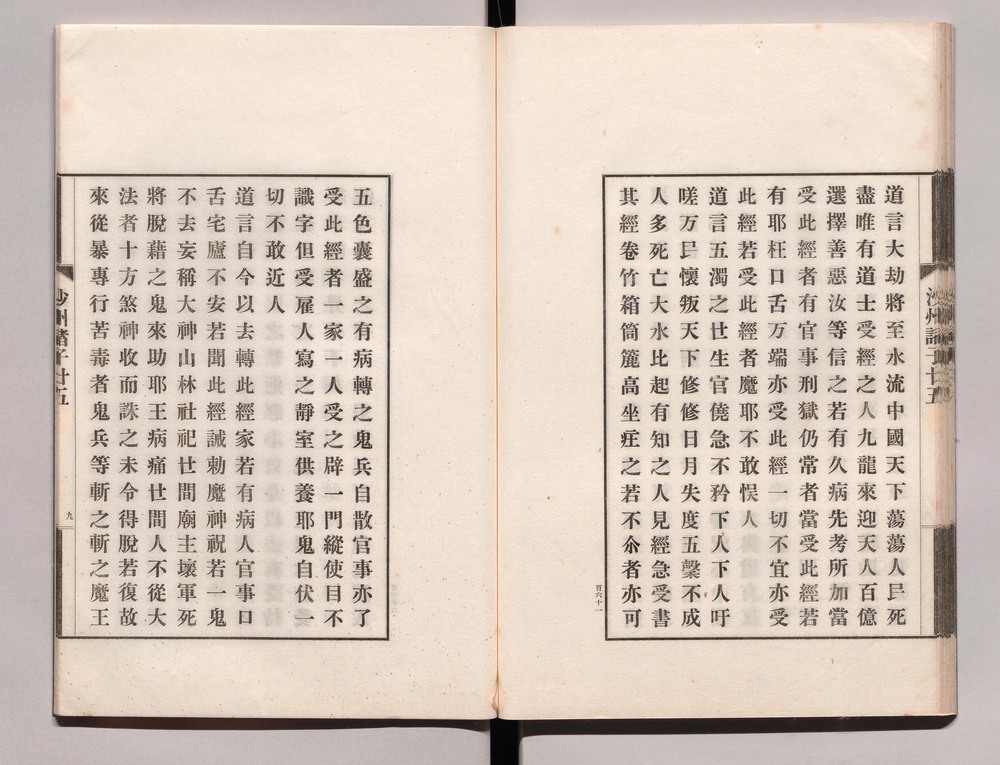 道言大劫將至水流中國天下蕩蕩人民死
盡唯有道士受經之人九龍來迎天人百億
選擇善惡汝等信之若有久病先考所加當
受此經者有官事刑獄仍常者當受此經若
有耶枉口舌万端亦受此經一切不宜亦受
此經若受此經者魔耶不敢悮人
道言五濁之世生官僥急不矜下人下人吁
嗟万民懷叛天下修修日月失度五穀不成
人多死亡大水比起有知之人見經急受書
其經卷竹箱筒簏高坐疰之若不尒者亦可
百六十一
沙州諸子廿五
五色囊盛之有病轉之鬼兵自散官事亦了
受此經者一家一人受之辟一門縱使目不
識字但受雇人寫之靜室供養耶鬼自伏一
切不敢近人
道言自今以去轉此經家若有病人官事口
舌宅廬不安若聞此經誡勅魔神祝若一鬼
不去妄稱大神山林社祀世間廟主壞軍死
將脫藉之鬼來助耶王病痛世間人不從大
法者十方煞神收而誅之未令得脫若復故
來從暴專行苦毒者鬼兵等斬之斬之魔王
沙州諸子廿五
九